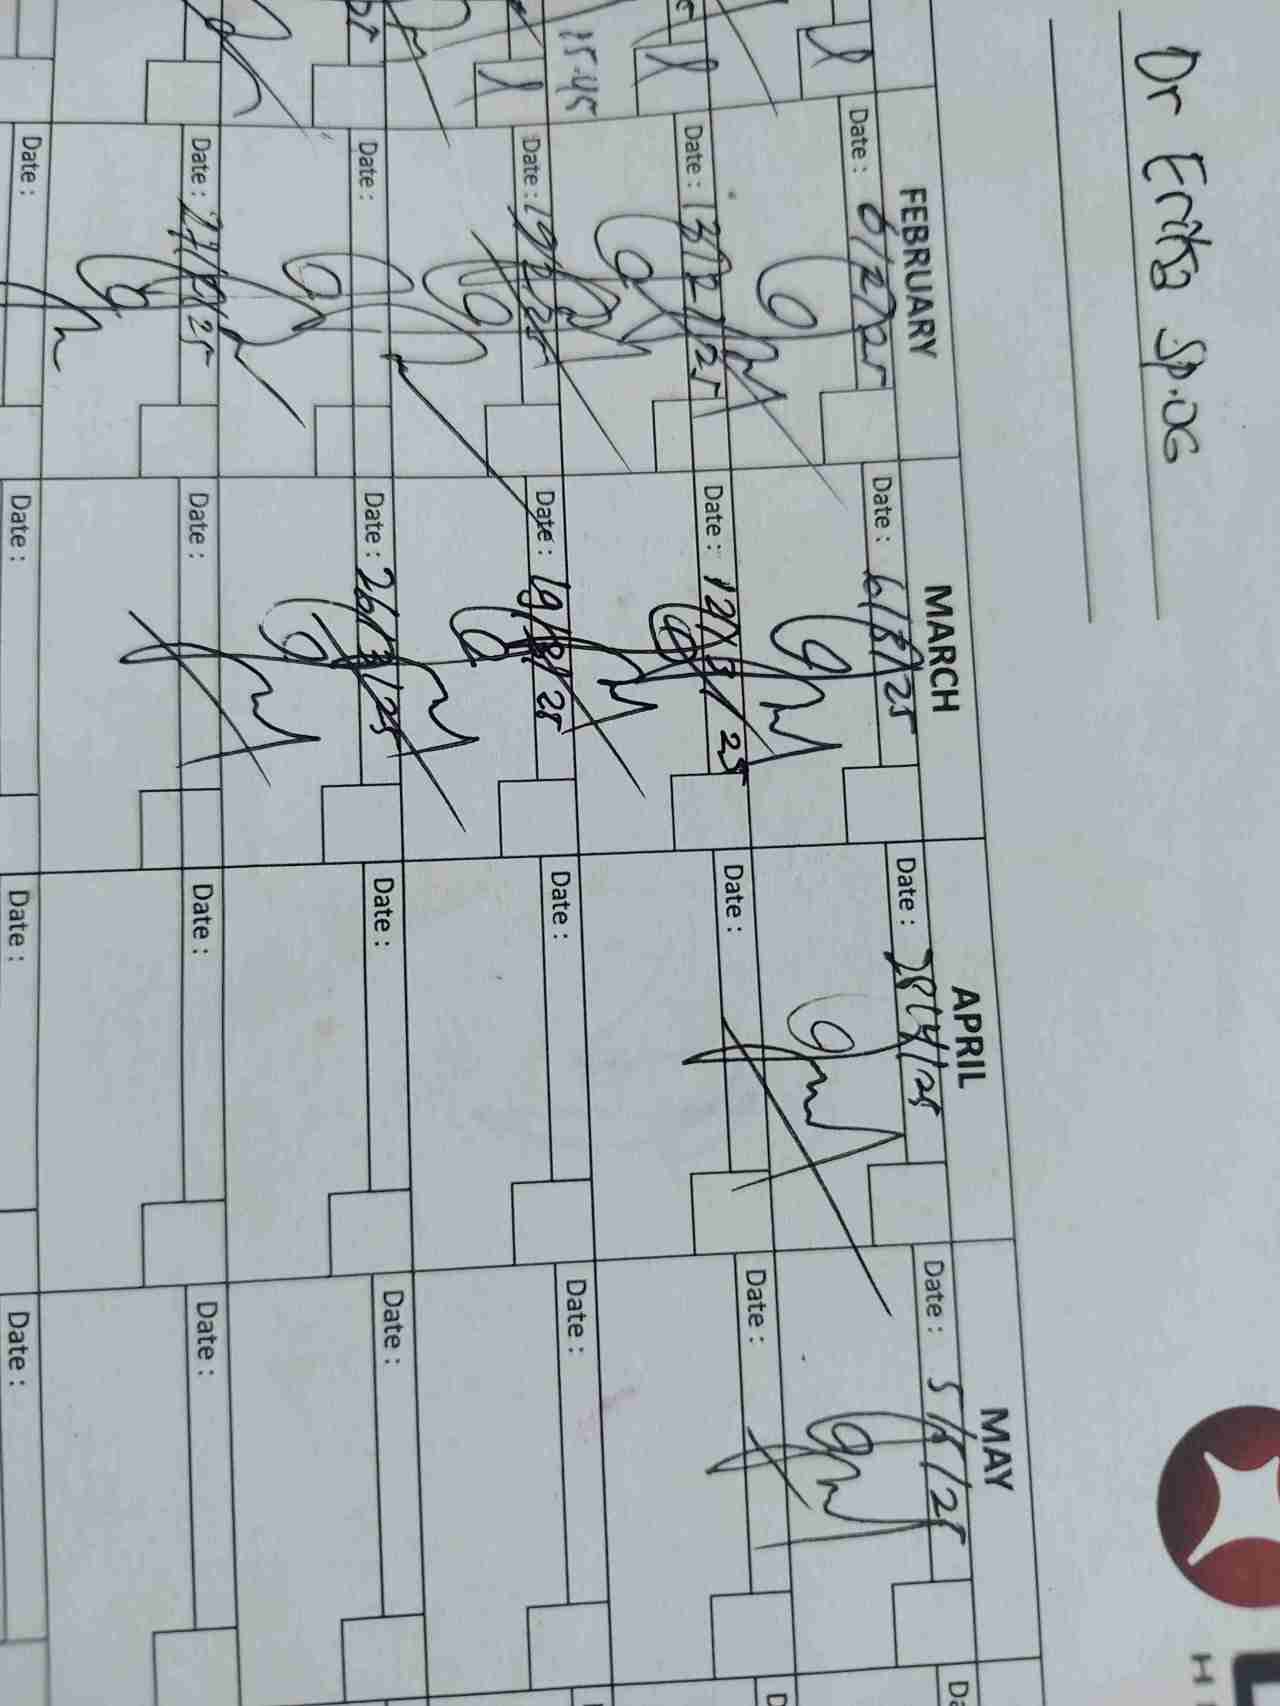 Dr Erika Sp.OG
FEBRUARY MARCH APRIL MAY
Date : 6/2/25 Date : 6/3/25 Date : 28/4/25 Date : 5/5/25
Date : 13/2/25 Date : 12/3/25 Date : Date :
15.45
Date : 19/2/25 Date : 19/3/25 Date : Date :
Date : Date : 26/3/25 Date : Date :
Date : 27/2/25 Date : Date : Date :
Date : Date : Date : Date :
H